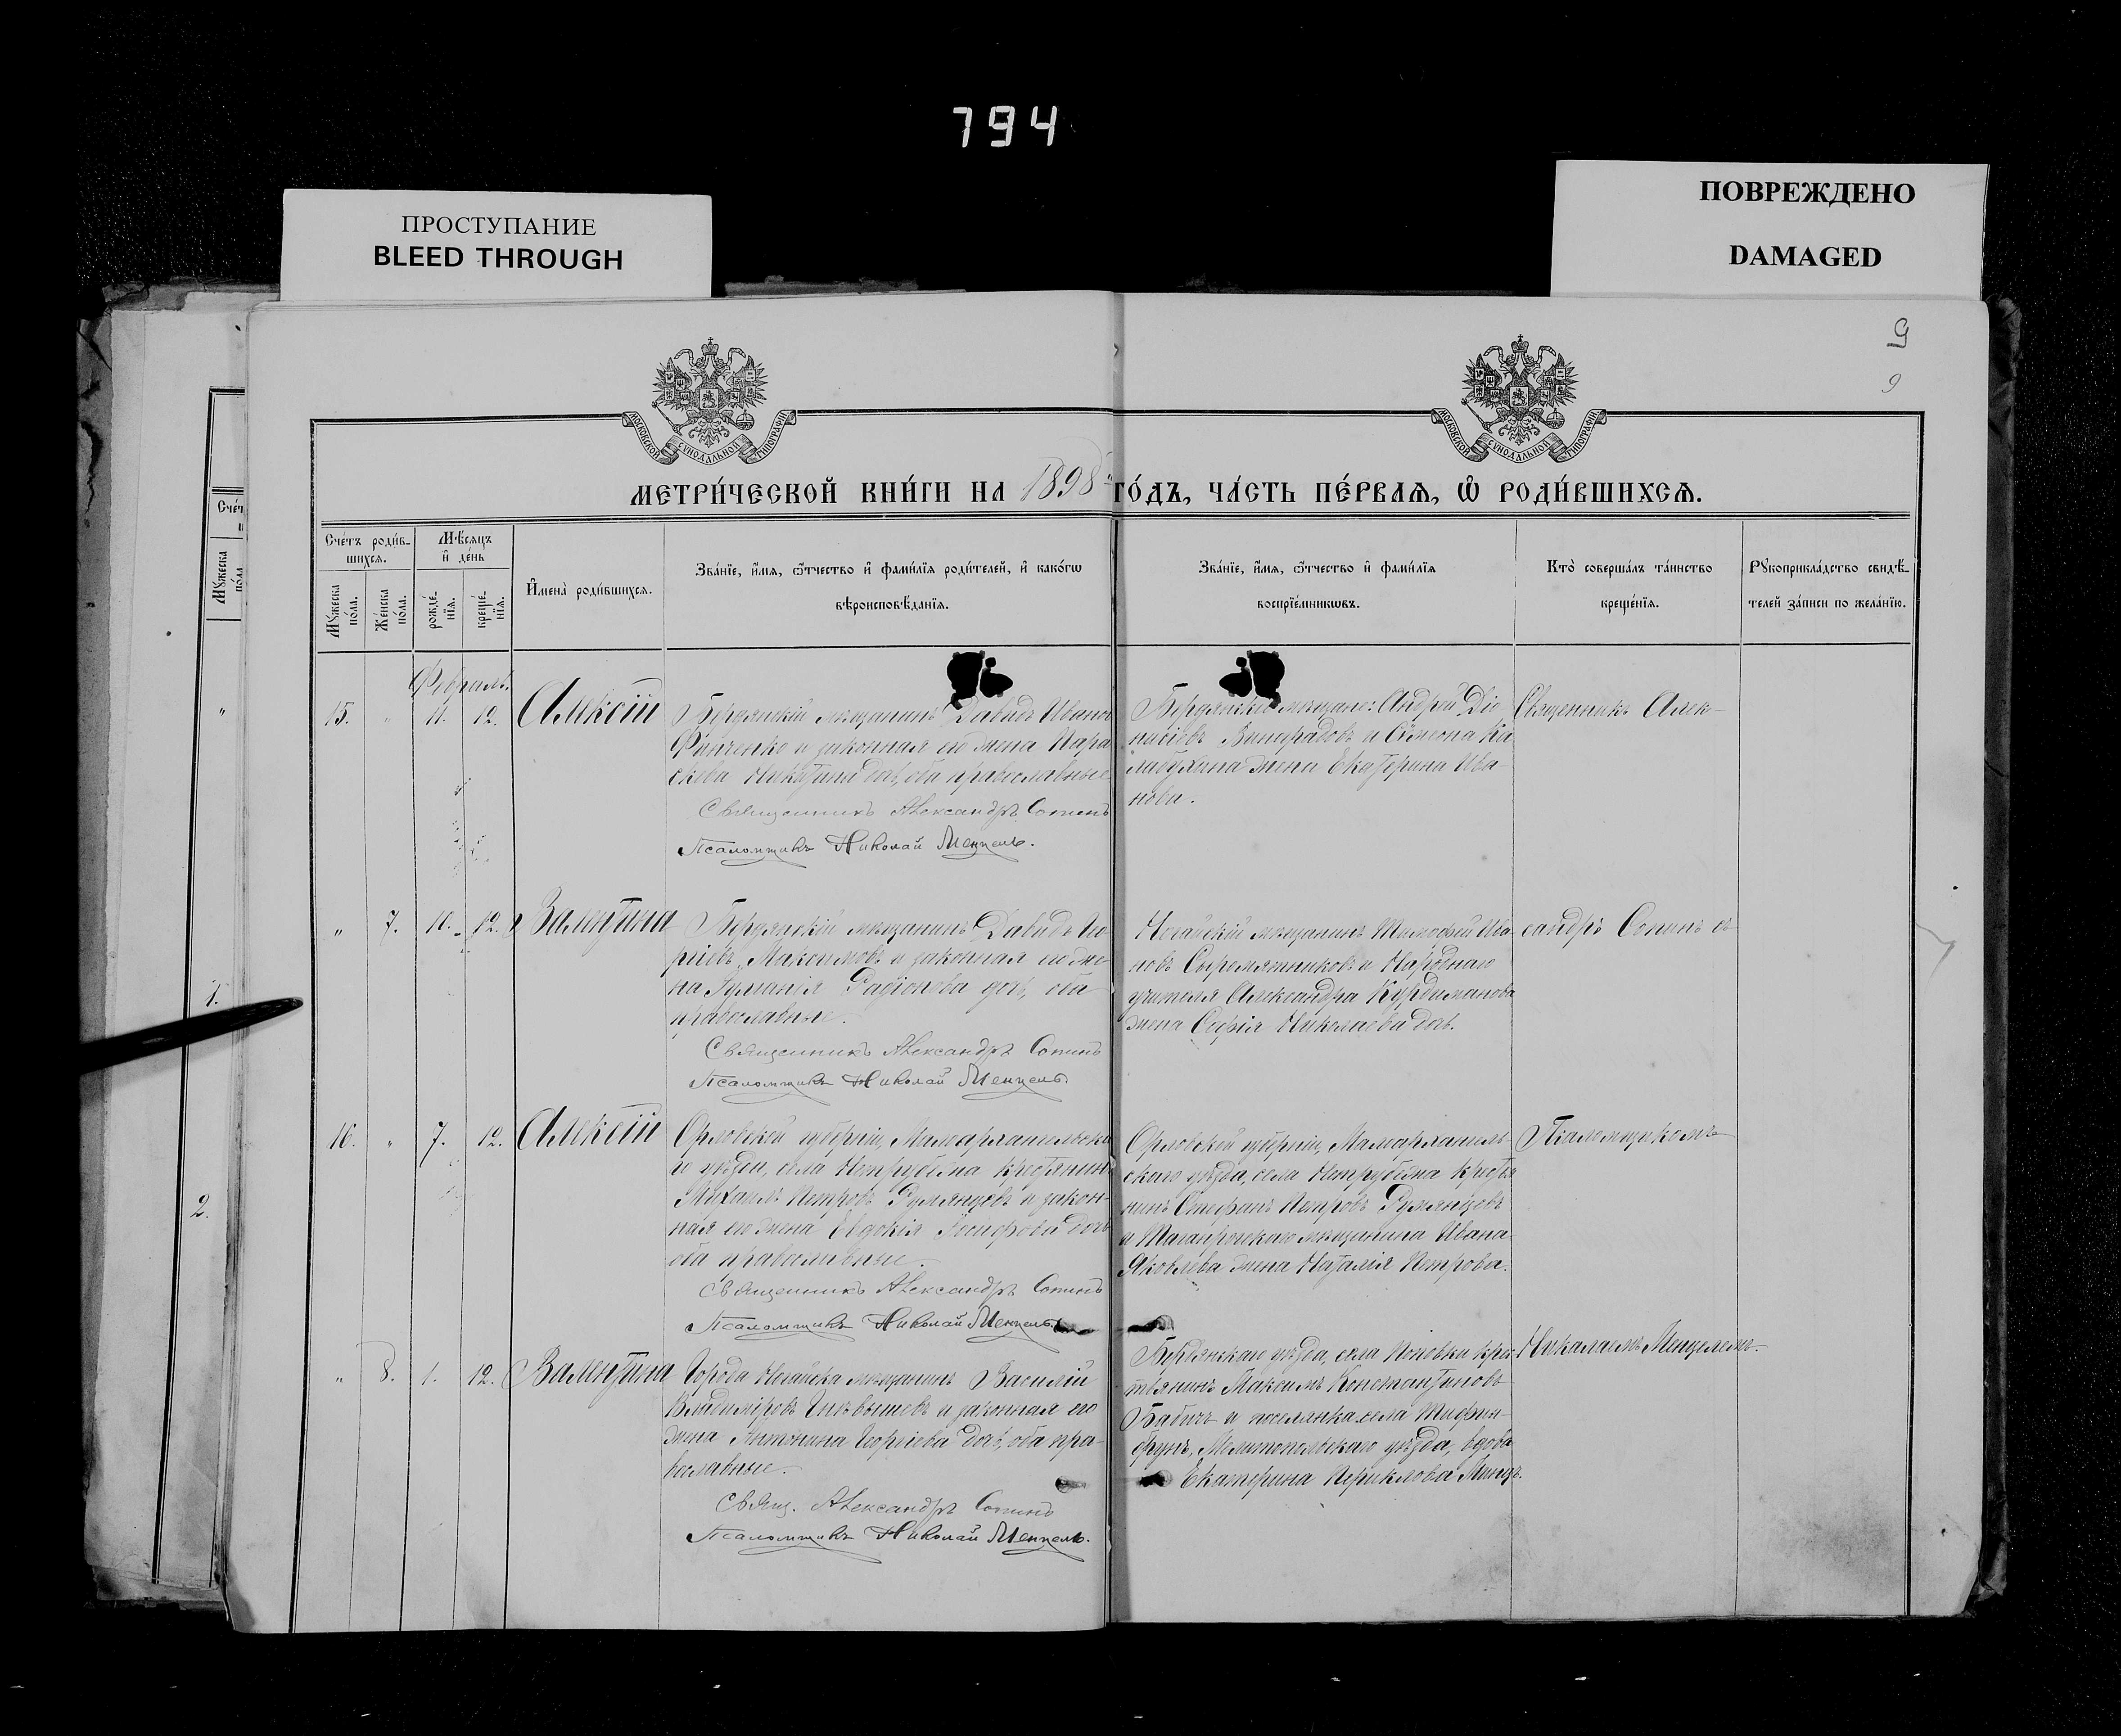 794
ПРОСТУПАНИЕ
BLEED THROUGH
ПОВРЕЖДЕНО
DAMAGED
9
9
МОСКОВСКОЙ СѴНОДАЛЬНОЙ ТИПОГРАФІИ
МОСКОВСКОЙ СѴНОДАЛЬНОЙ ТИПОГРАФІИ
МЕТРИ́ЧЕСКОЙ КНИ́ГИ НА 1898 ГО́ДЪ, ЧА́СТЬ ПЕ́РВАѦ, Ѡ҆ РОДИ́ВШИХСѦ.
Сче́тъ роди́в-
шихсѧ.
Мѣ́сѧцъ
и҆ де́нь
Мꙋ́жеска
по́ла.
Же́нска
по́ла.
рожде́-
нїѧ.
креще́-
нїѧ.
И҆мена̀ роди́вшихсѧ.
Зва́нїе, и҆́мѧ, ѻ҆́тчество и҆ фами́лїѧ роди́телей, и҆ како́гѡ
вѣроисповѣ́данїѧ.
Зва́нїе, и҆́мѧ, ѻ҆́тчество и҆ фами́лїѧ
воспрїе́мникѡвъ.
Кто̀ соверша́лъ та́инство
креще́нїѧ.
Рꙋкоприкла́дство свидѣ́-
телей за́писи по жела́нїю.
Февраль.
15. " 11. 12. Алексій
Бердянскій мѣщанинъ Давидъ Ивановъ
и законная его жена Пара
скева Никитина дочь, оба православные
Священникъ Александръ Сопинъ
Псаломщикъ Николай Менцель.
Бердянскіе мѣщане: Андрей Діо
нисіевъ Виноградовъ и Симеона Ка
лабухина жена Екатерина Ива-
нова.
Священникъ Алек-
" 7. 10. 12. Валентина
Бердянскій мѣщанинъ Давидъ Гео
ргіевъ Максимовъ и законная его же-
на Гуманія Радіонова дочь, оба
православные.
Священникъ Александръ Сопинъ
Псаломщикъ Николай Менцель.
Ногайскій мѣщанинъ Тимофей Ива-
новъ Сыромятниковъ и Народнаго
учителя Александра Курдиманова
жена Софія Николаева дочь.
сандръ Сопинъ съ
16. " 7. 12. Алексій
Орловской губерніи, Малоархангельска
го уѣзда, села крестьянинъ
Михаилъ Петровъ Румянцовъ и закон-
ная его жена Евдокія Іосифова дочь
оба православные.
Священникъ Александръ Сопинъ
Псаломщикъ Николай Менцель.
Орловской губерніи, Малоархангель-
скаго уѣзда, села крестья
нинъ Стефанъ Петровъ Румянцовъ
и Таганрогскаго мѣщанина Ивана
Яковлева жена Наталія Петрова.
Псаломщикомъ
" 8. 1. 12. Валентина
Города Ногайска мѣщанинъ Василій
Владиміровъ и законная его
жена Антонина Георгіева дочь, оба пра-
вославные.
Свящ. Александръ Сопинъ
Псаломщикъ Николай Менцель.
Бердянскаго уѣзда, села Поповки крес-
тьянинъ Максимъ Константиновъ
Бабичъ и поселянка села
Мелитопольскаго уѣзда, вдова
Екатерина Периклова
Николаемъ Менцелемъ.
Сче́т
Мꙋ́жеска
по́ла
"
1.
2.